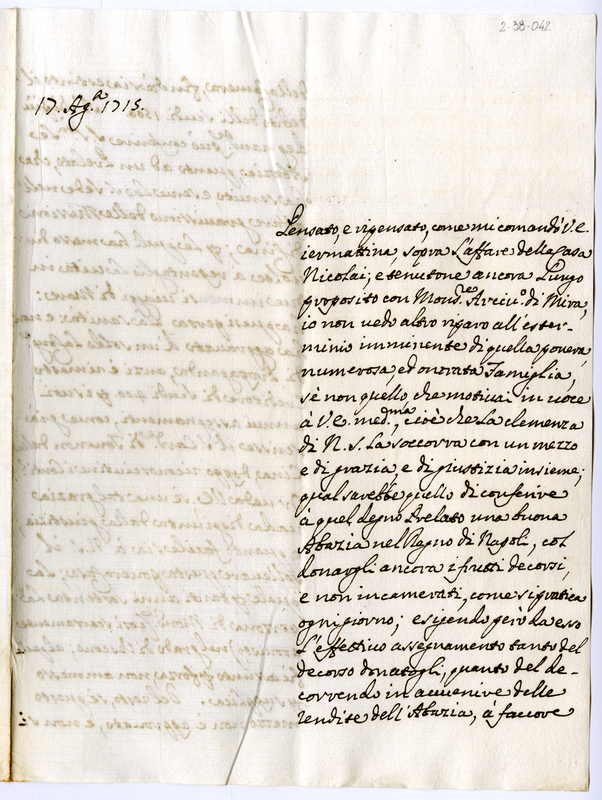 2-38-042
17. Ag.º 1715.
Pensato, e ripensato, come mi comandò V.E.
iermattina sopra L'affare della Casa
Nicolai, e tenutone ancora Lungo
proposito con Mons.re Arciv.o di Mira,
io non vedo altro riparo all'ester-
minio imminente di quella povera,
numerosa, ed onorata Famiglia,
sè non quello, che motivai in voce
à V.E. med.ma, cioè che La clemenza
di N. S. La soccorra con un mezzo
e di grazia, e di giustizia insieme;
qual sarebbe quello di conferire
à quel degno Prelato una buona
Abazia nel Regno di Napoli, col
donargli ancora i frutti decorsi,
e non incamerati, come si pratica
ogni giorno; esigendo però da esso
L'effettivo assegnamento tanto del
decorso donatogli, quanto del de-
correndo in avvenire delle
rendite dell'Abazia, à favore